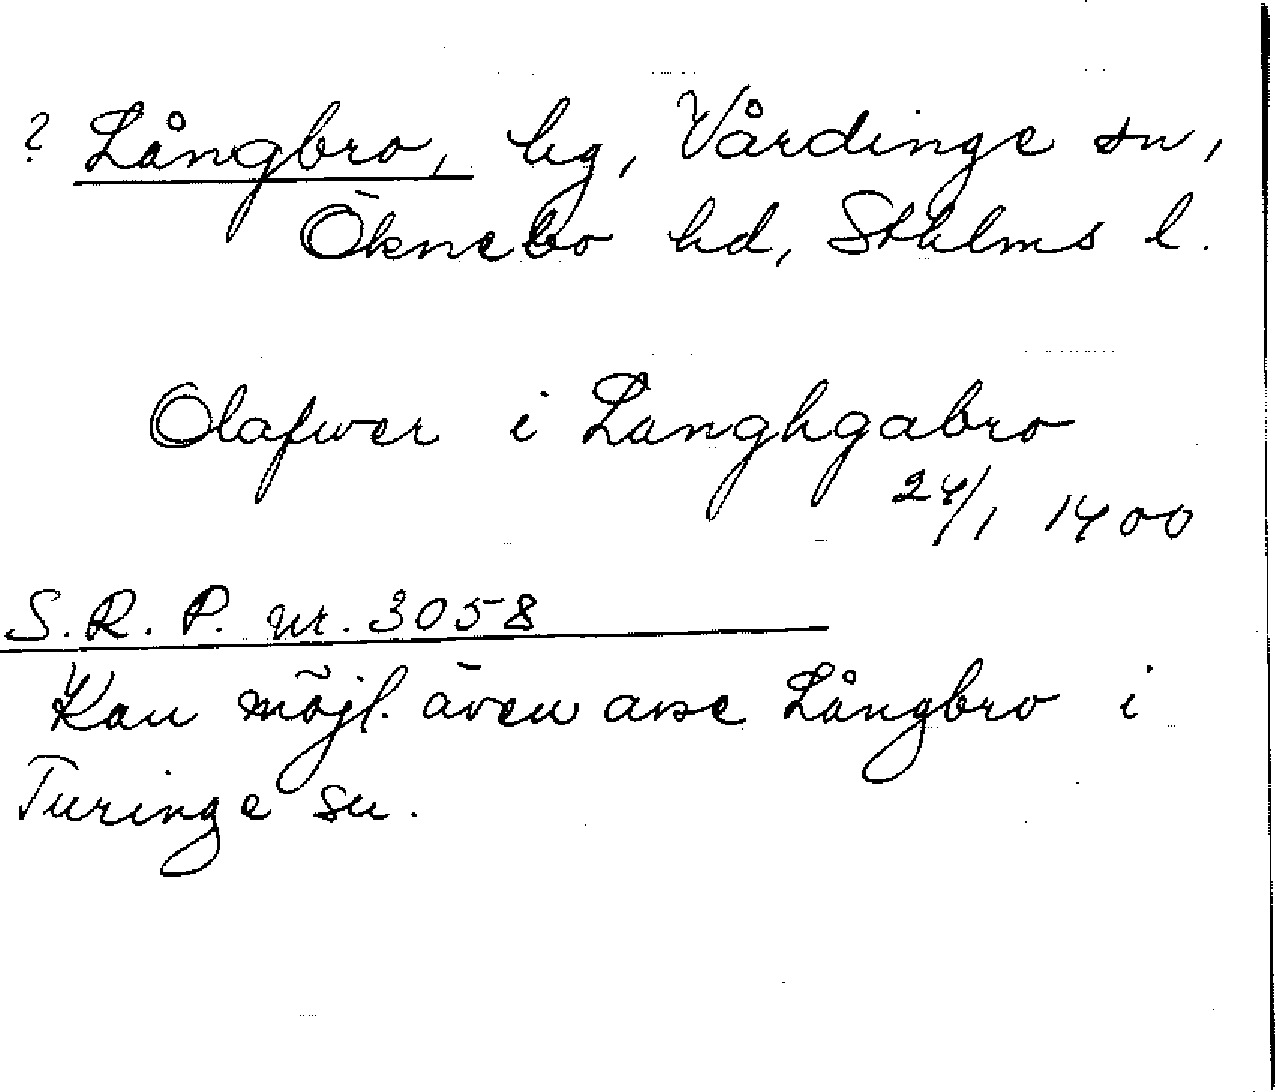 ? Långbro, hg, Vårdinge sn,
Öknebo hd, Sthlms l.
Olafwer i Langhgabro
24/1 1400
S.R.P. nr. 3058
Kan möjl. även avse Långbro i
Turinge sn.